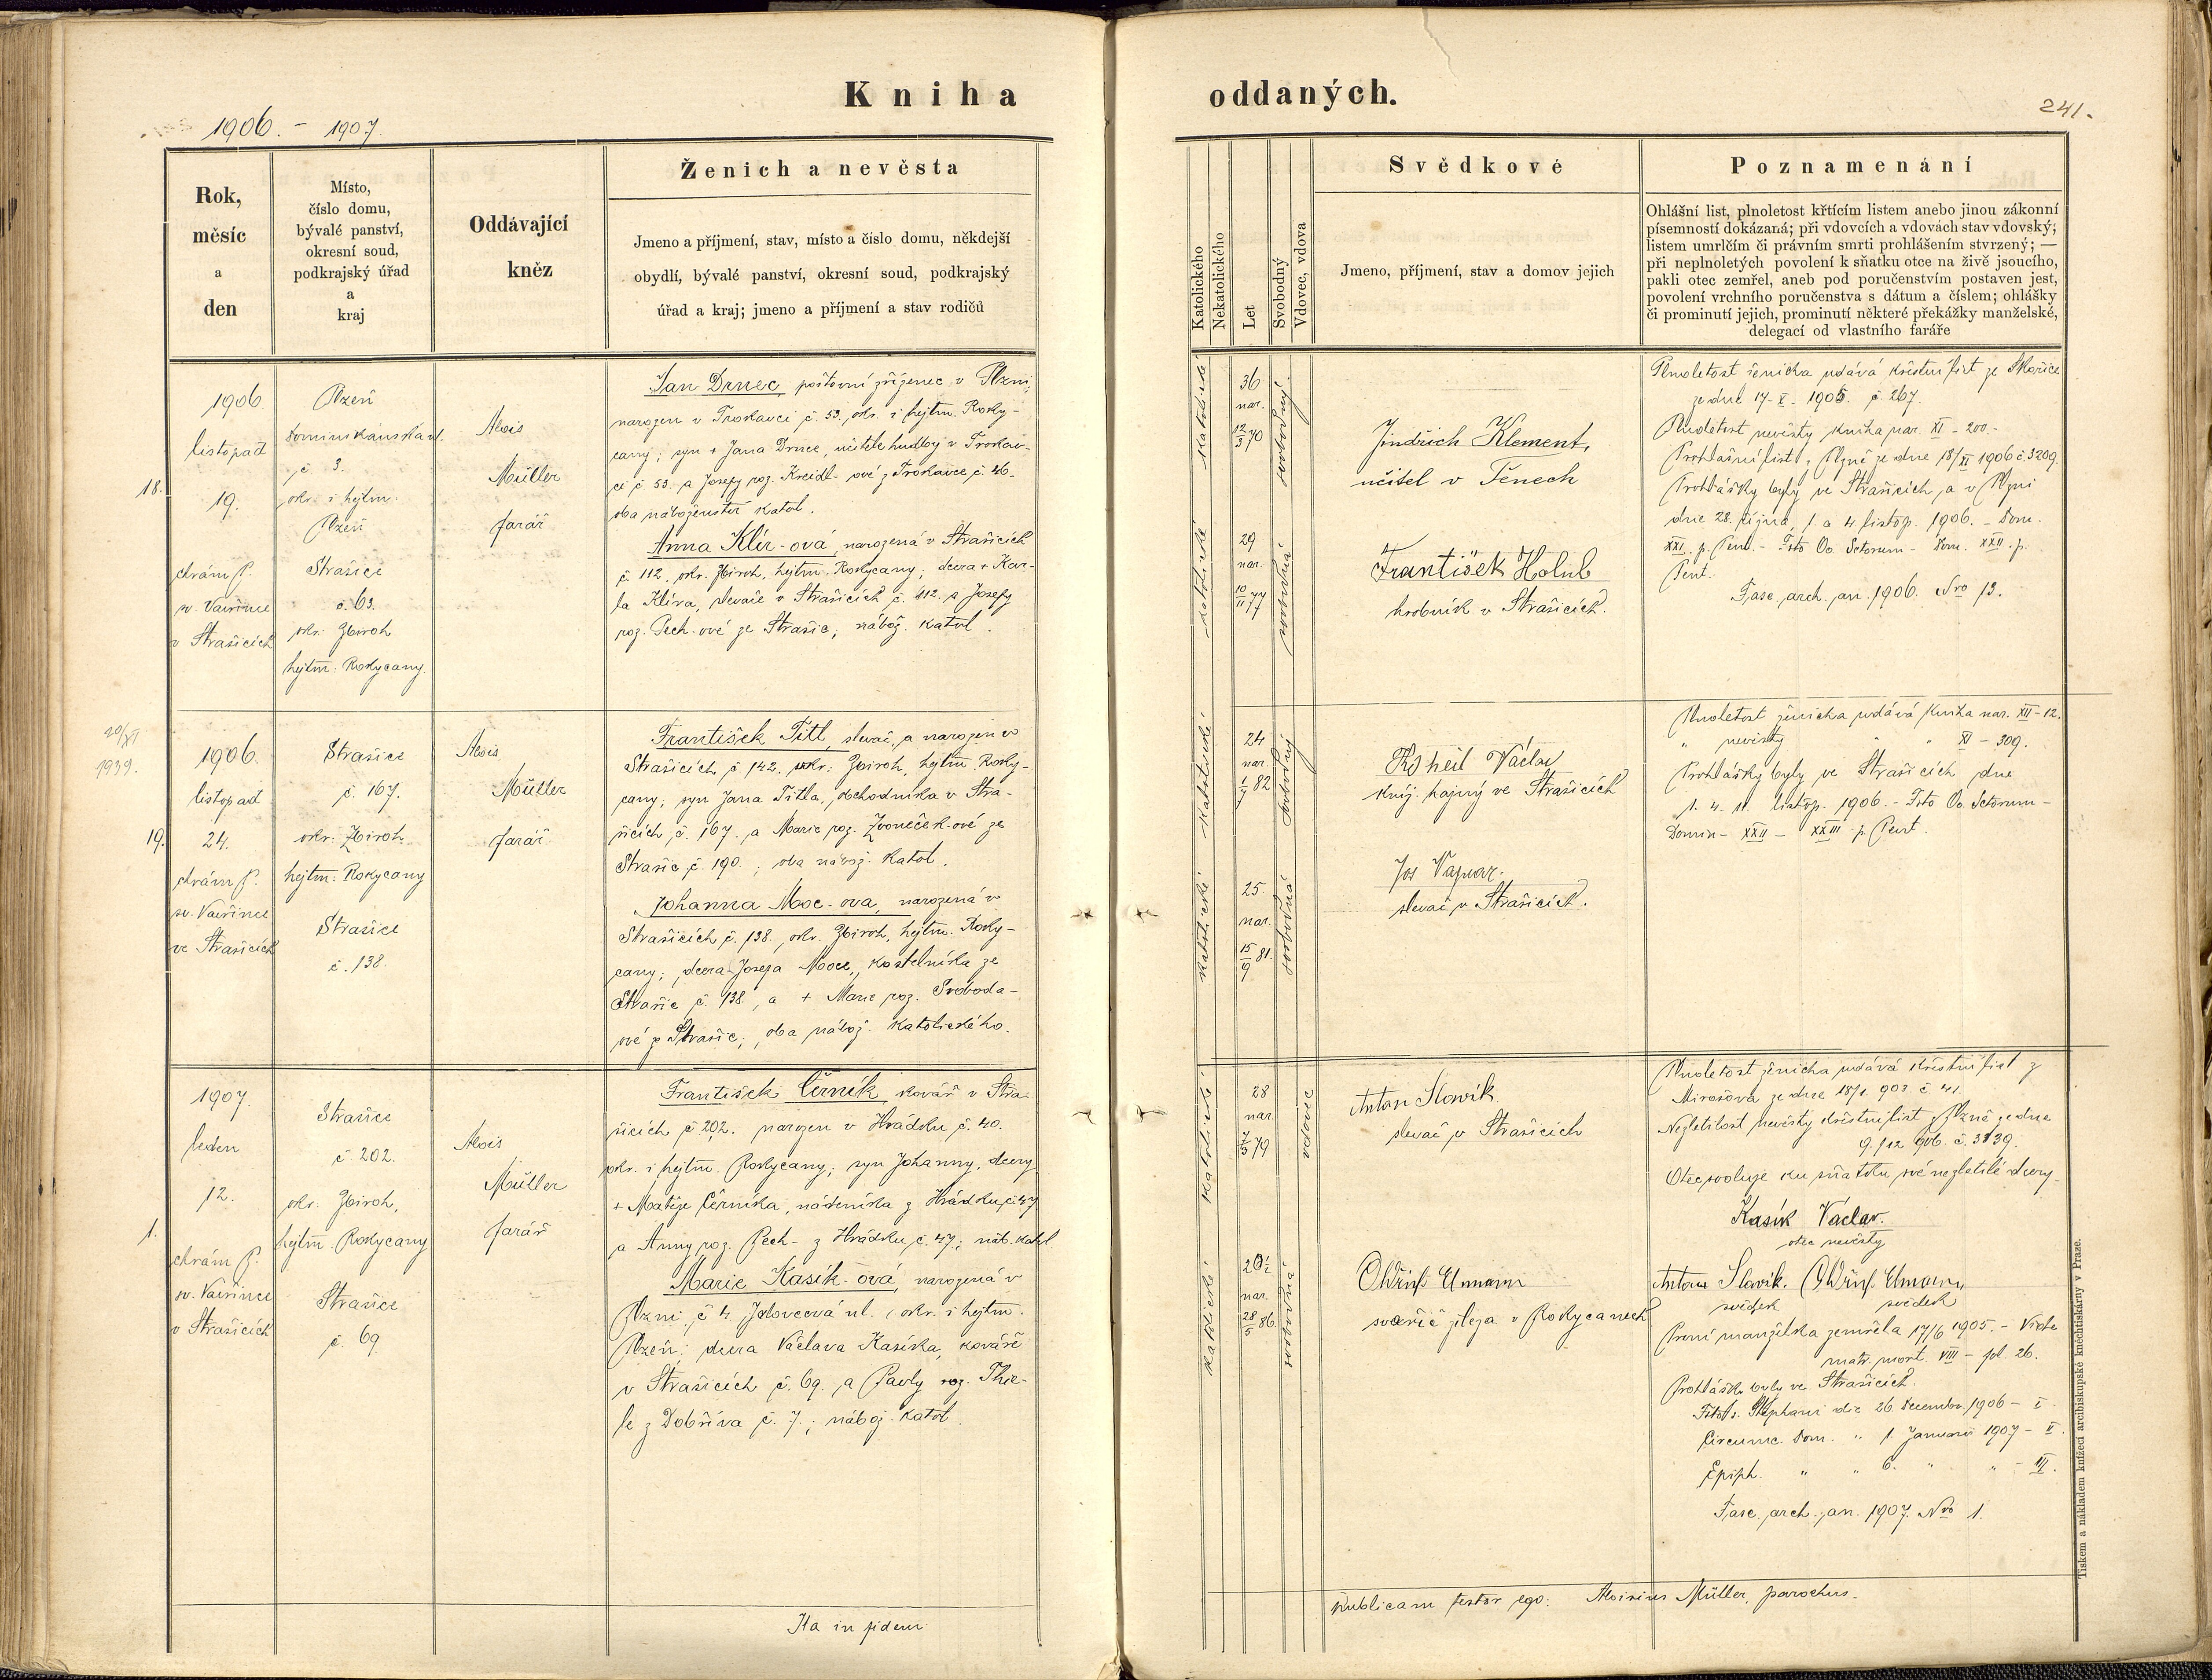 Kniha
oddaných.
241.
1906. - 1907.
Rok,
měsíc
a
den
Místo,
číslo domu,
bývalé panství,
okresní soud,
podkrajský úřad
a
kraj
Oddávající
kněz
Ženich a nevěsta
Jmeno a příjmení, stav, místo a číslo domu, někdejší
obydlí, bývalé panství, okresní soud, podkrajský
úřad a kraj; jmeno a příjmení a stav rodičů
Katolického
Nekatolického
Let
Svobodný
Vdovec, vdova
Svědkové
Jmeno, příjmení, stav a domov jejich
Poznamenání
Ohlášní list, plnoletost křtícím listem anebo jinou zákonní
písemností dokázaná; při vdovcích a vdovách stav vdovský;
listem umrlčím či právním smrti prohlášením stvrzený; —
při neplnoletých povolení k sňatku otce na živě jsoucího,
pakli otec zemřel, aneb pod poručenstvím postaven jest,
povolení vrchního poručenstva s dátum a číslem; ohlášky
či prominutí jejich, prominutí některé překážky manželské,
delegací od vlastního faráře
18.
1906.
listopad
19.
chrám P.
sv. Vavřince
v Strašicích
Plzeň
Dominikánská ul.
č 3.
okr. i hejtm.
Plzeň
Strašice
č. 63.
okr. Zbiroh
hejtm: Rokycany.
Alois
Müller
farář
Jan Drnec, poštovní zřízenec v Plzni,
narozen v Troskavci č. 53, okr. i hejtm. Roky-
cany; syn + Jana Drnce, učitele hudby v Troskav-
ci č 53. a Josefy roz. Kreidl-ové z Troskavce č. 46.
oba náboženství katol.
Anna Klír-ová, narozená v Strašicích
č 112. okr. Zbiroh, hejtm. Rokycany; dcera + Kar-
la Klíra, slevače v Strašicích č. 112. a Josefy
roz. Pech-ové ze Strašic; nábož. katol.
katolické
36
nar.
12/3 70
svobodný
katolické
29
nar.
10/11 77
svobodná
Jindřich Klement,
učitel v Těnech
František Holub
hrobník v Strašicích.
Plnoletost ženicha udává křestní list ze Skořice
ze dne 17. X. 1905. č. 267.
Plnoletost nevěsty kniha nar. XI - 200.
Prohlášní list z Plzně ze dne 18/XI 1906 č. 3209.
Prohlášky byly ve Strašicích a v Plzni
dne 28. října, 1. a 4 listop. 1906. - Dom.
XXI. p. Pent. - Fsto Oo. Sctorum - Dom. XXII. p.
Pent.
Fasc. arch. an. 1906. Nro 13.
20/XI
1939.
19.
1906.
listopad
24.
chrám P.
sv. Vavřince
ve Strašicích
Strašice
č. 167.
okr. Zbiroh
hejtm: Rokycany
Strašice
č. 138.
Alois
Müller
farář
František Titl, slevač, a narozen v
Strašicích č 142. okr: Zbiroh, hejtm. Roky-
cany; syn Jana Titla, obchodníka v Stra-
šicích č. 167. a Marie roz. Zvoneček-ové ze
Strašic č. 190.; oba nábož. katol.
Johanna Moc-ova, narozená v
Strašicích č. 138. okr. Zbiroh, hejtm. Roky-
cany; dcera Josefa Moce, kostelníka ze
Strašic č. 138., a + Marie roz. Svoboda-
ové z Strašic; oba nábož. katolického.
katolické
24
nar.
1/7 82
svobodný
katolické
25
nar.
15/9 81.
svobodná
Václav
kníž. hajný ve Strašicích
Jos Vapear.
slevač v Strašicích.
Plnoletost ženicha udává kniha nar. XII-12.
" nevěsty " " XI - 309.
Prohlášky byly ve Strašicích dne
1. 4. 11. listop. 1906. - Fsto Oo. Sctorum -
Domin - XXII - XXIII p. Pent.
1.
1907.
leden
12.
chrám P.
sv. Vavřince
v Strašicích
Strašice
č. 202.
okr. Zbiroh,
hejtm. Rokycany
Strašice
č. 69.
Alois
Müller
farář
František Černík kovář v Stra-
šicích č 202. narozen v Hrádku č. 40.
okr. i hejtm. Rokycany; syn Johanny, dcery
+ Matěje Černíka, nádeníka z Hrádku č. 47
a Anny roz. Pech- z Hrádku č. 47.; náb. katol.
Marie Kasík-ová, narozená v
Plzni, č 4. Jaloveová ul., okr. i hejtm.
Plzeň: dcera Václava Kasíka, kováře
v Strašicích č. 69. a Pavly roz. Thie-
le z Dobříva č. 7.; nábož. katol.
katolické
28
nar.
7/5 79
vdovec
katolické
20½
nar.
28/5 86.
svobodná
Anton Slavík
slevač v Strašicích
Oldřich Elmann
v Rokycanech
Plnoletost ženicha udává křestní list z
Mirošova ze dne 18/1 903. č 41.
Nezletilost nevěsty křestní list z Plzně ze dne
9./12 906. č. 3139.
Otec svoluje ku sňatku své nezletilé dcery.
Kasík Václav.
otec nevěsty
Antonn Slavik. Oldřich Elmann
svědek svědek
První manželka zemřela 17/6 1905. - Vide
matr. mort. VIII - fol. 26.
Prohlášky byly ve Strašicích.
Fsto s. Stephani die 26. Decembr. 1906 - I.
Circumc. Dom. " 1. Januarii 1907 - II.
Epiph. " " 6. " " - III.
Fasc. arch. an. 1907. Nro 1.
Ita in fidem
publicam testor ego: Aloisius Müller, parochus.
Tiskem a nákladem knížecí arcibiskupské knihtiskárny v Praze.